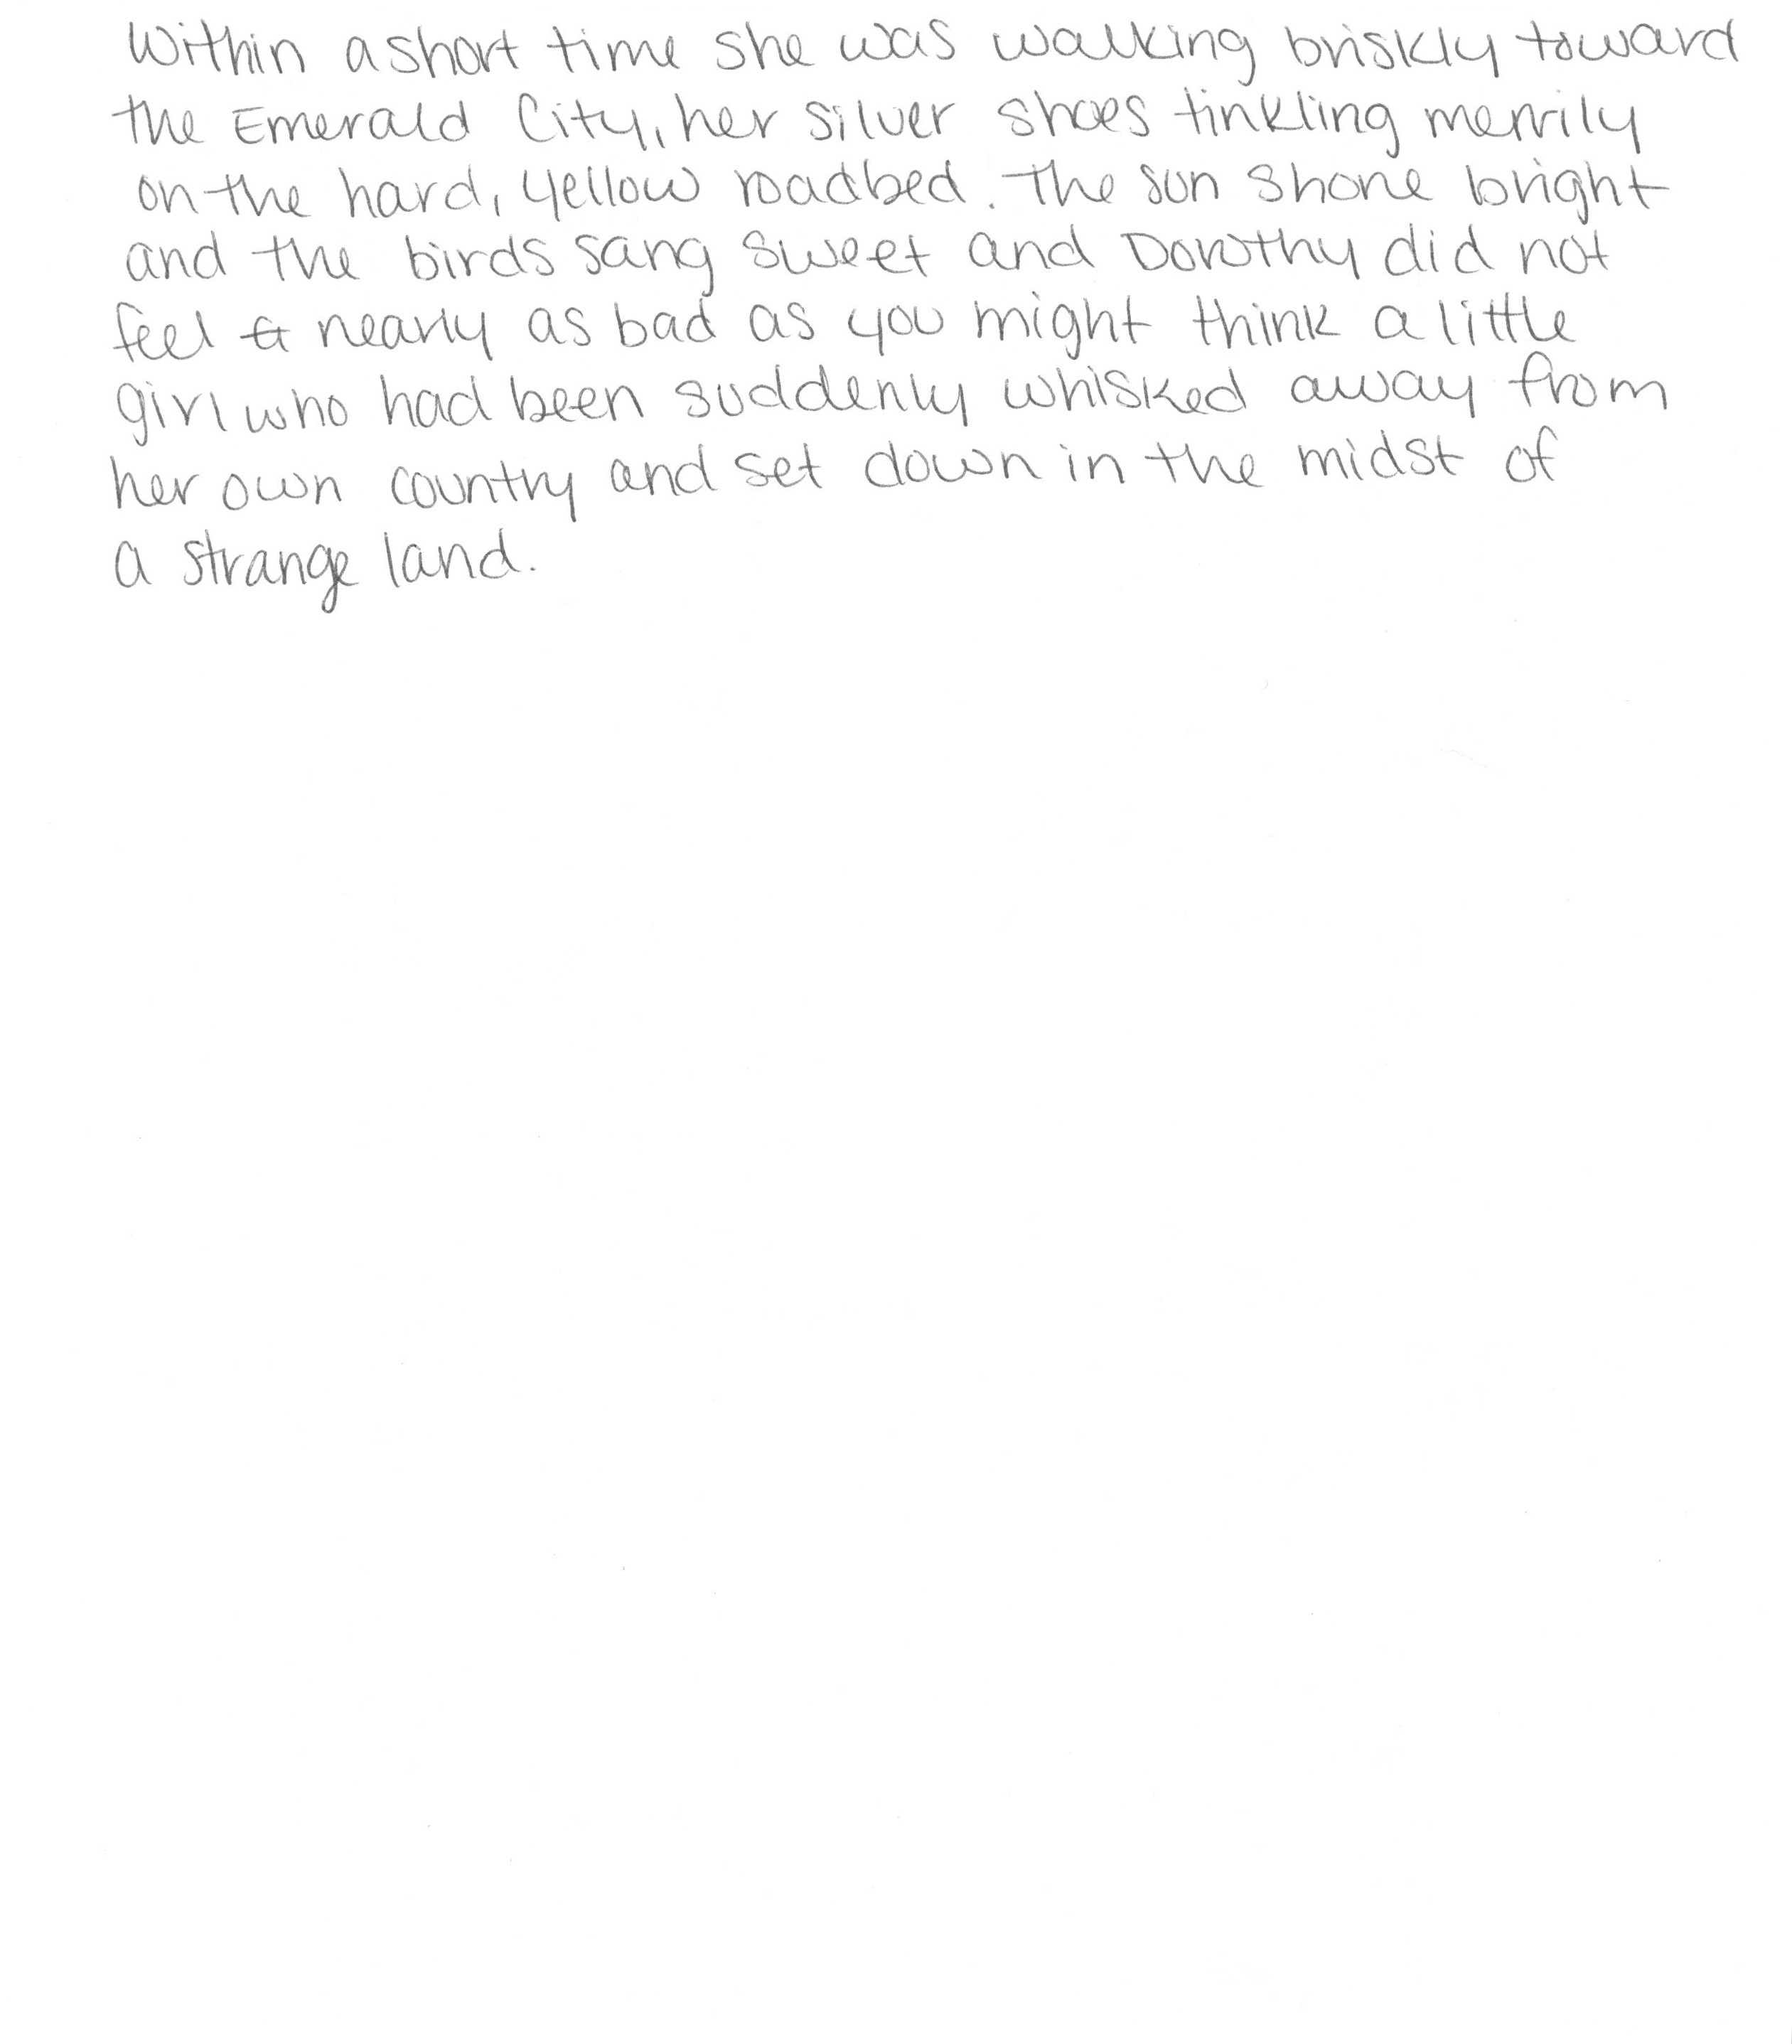 Within a short time she was walking briskly toward
the Emerald City, her silver shoes tinkling merrily
on the hard, yellow roadbed. The sun shone bright
and the birds sang sweet and Dorothy did not
feel a nearly as bad as you might think a little
girl who had been suddenly whisked away from
her own country and set down in the midst of
a strange land.